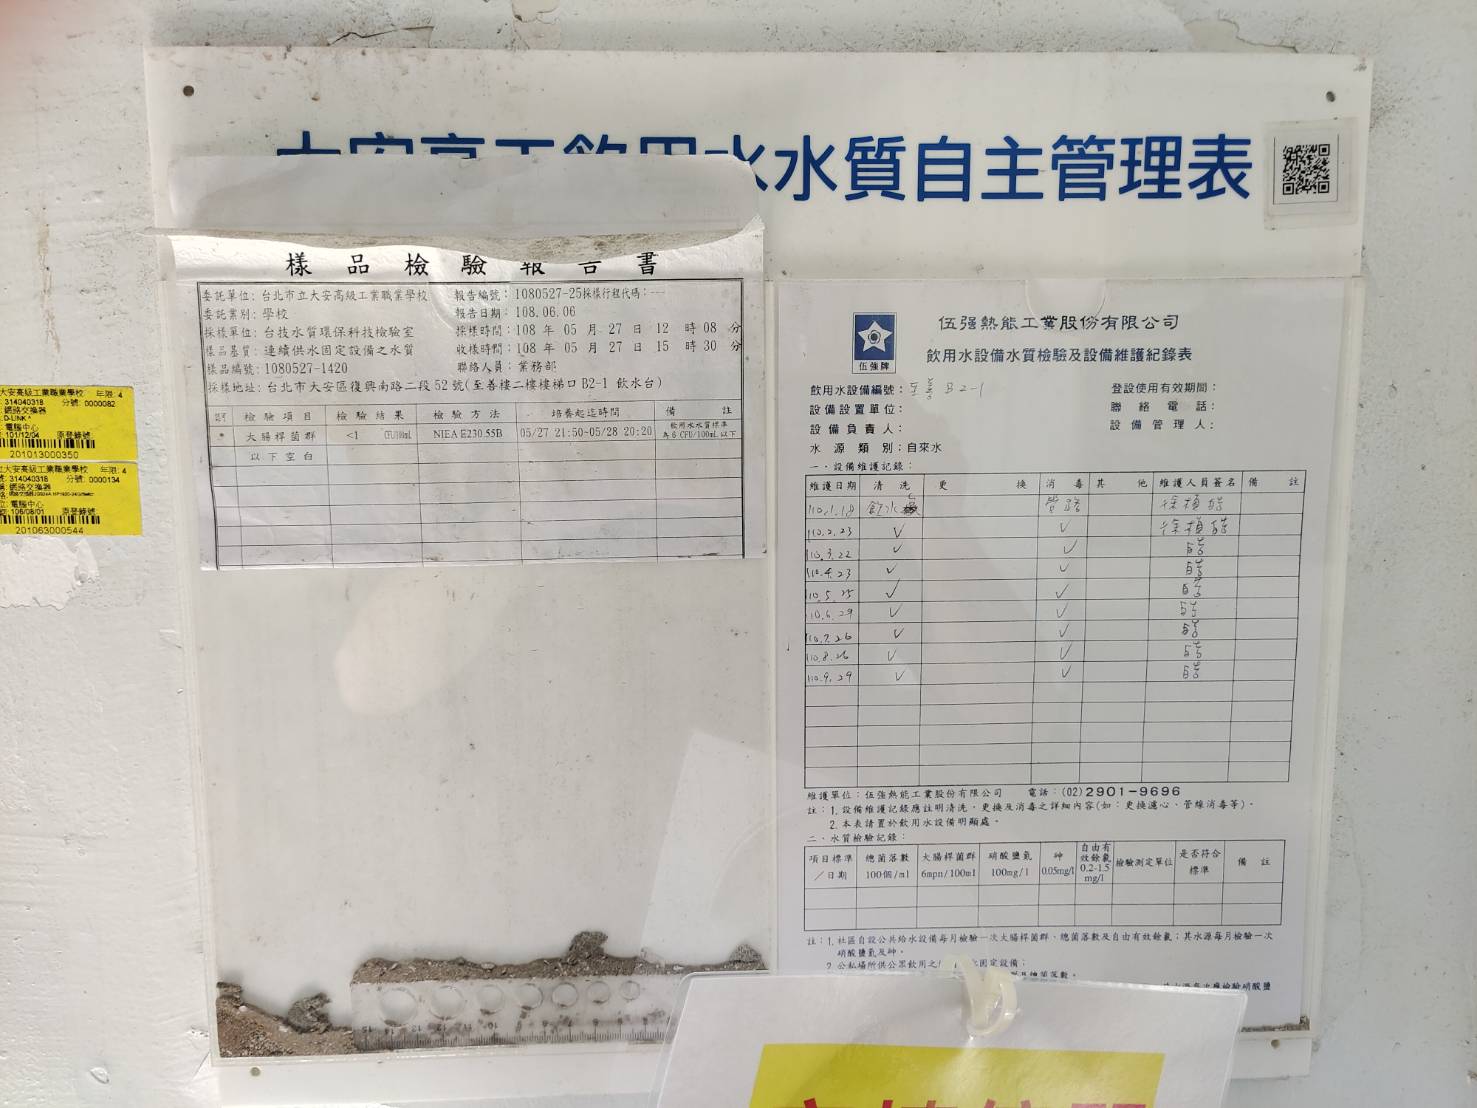 大安高工飲用水水質自主管理表
樣品檢驗報告書
委託單位: 台北市立大安高級工業職業學校 報告編號: 1080527-25採樣行程代碼: ---
委託業別: 學校 報告日期: 108.06.06
採樣單位: 台技水質環保科技檢驗室 採樣時間: 108 年 05 月 27 日 12 時 08 分
樣品基質: 連續供水固定設備之水質 收樣時間: 108 年 05 月 27 日 15 時 30 分
樣品編號: 1080527-1420 聯絡人員: 業務部
採樣地址: 台北市大安區復興南路二段 52 號(至善樓二樓樓梯口 B2-1 飲水台)
檢驗項目 檢驗結果 檢驗方法 培養起迄時間 備註
* 大腸桿菌群 <1 CFU/100mL NIEA E230.55B 05/27 21:50~05/28 20:20 飲用水水質標準為 6 CFU/100mL 以下
以下空白
伍強牌
伍强熱能工業股份有限公司
飲用水設備水質檢驗及設備維護紀錄表
飲用水設備編號: 至善 B2-1 登設使用有效期間:
設備設置單位: 聯絡電話:
設備負責人: 設備管理人:
水源類別: 自來水
一、設備維護記錄:
維護日期 清洗 更換 消毒 其他 維護人員簽名 備註
110.1.18 飲水機 管路
110.2.23 ✓ ✓
110.3.22 ✓ ✓
110.4.23 ✓
110.5.25 ✓ ✓
110.6.29 ✓ ✓
110.7.26 ✓ ✓
110.8.26 ✓ ✓
110.9.29 ✓ ✓
維護單位: 伍強熱能工業股份有限公司 電話: (02)2901-9696
註: 1.設備維護記錄應註明清洗、更換及消毒之詳細內容(如: 更換濾心、管線消毒等)。
2.本表請置於飲用水設備明顯處。
二、水質檢驗記錄:
項目標準/日期 總菌落數 100個/ml 大腸桿菌群 6mpn/100ml 硝酸鹽氮 100mg/l 砷 0.05mg/l 自由有效餘氯 0.2-1.5 mg/l 檢驗測定單位 是否符合標準 備註
註: 1.社區自設公共給水設備每月檢驗一次大腸桿菌群、總菌落數及自由有效餘氯; 其水源每月檢驗一次
硝酸鹽氮及砷。
2.公私場所供公眾飲用之 水固定設備:
總菌落數。
檢驗硝酸鹽
大安高級工業職業學校 年限: 4
314040318 分號: 0000082
網路交換器
D-LINK
電腦中心
101/12/04 原登錄號
201013000350
大安高級工業職業學校 年限: 4
314040318 分號: 0000134
網路交換器
電腦中心
106/08/01 原登錄號
201063000544